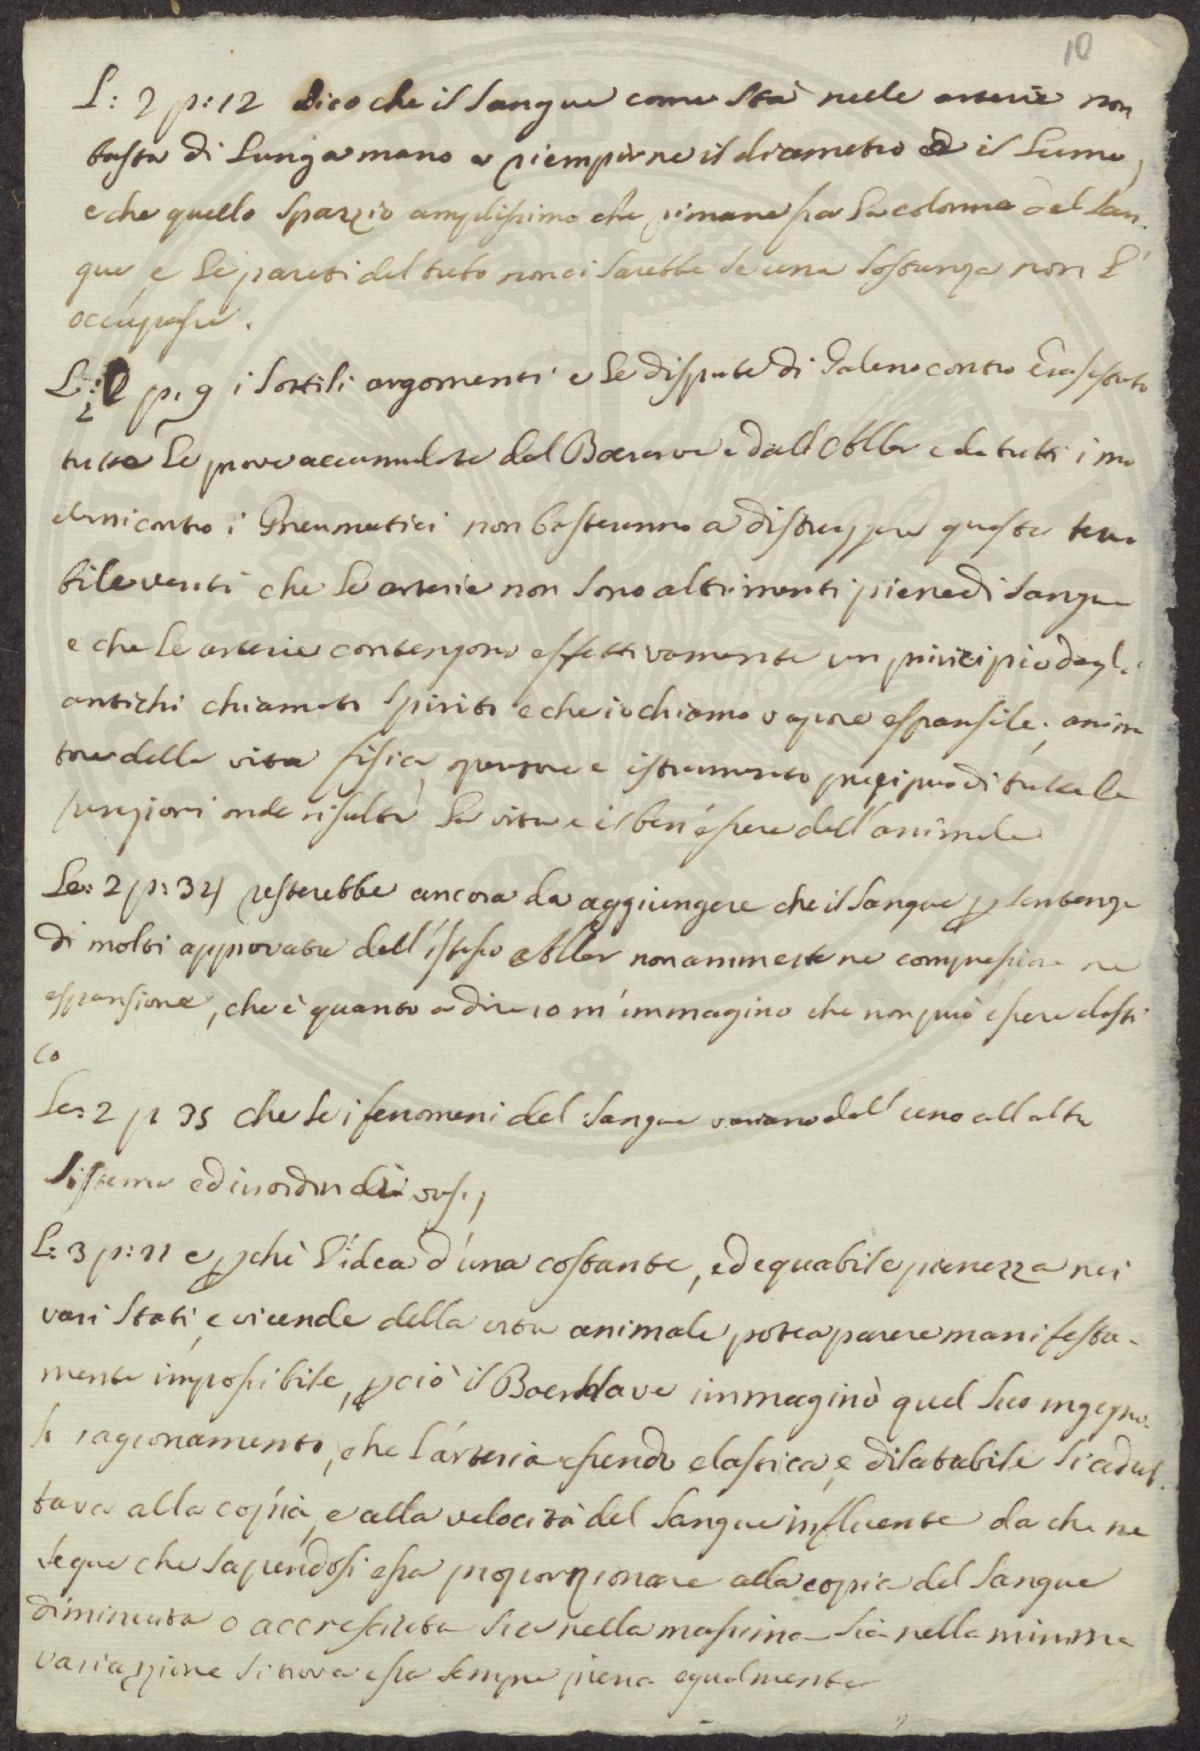 10
L: 2 p: 12 dico che il sangue come stà nelle arterie non
basta di lunga mano a riempirne il diametro ed il lume,
e che quello spazzio amplissimo che rimane fra la colonna del san-
gue e le pareti del tubo non ci sarebbe se una sostanza non l'
occupasse.
L: 2 p. 9 i sottili argomenti e le dispute di Galeno contro Erasistrato
tutte le prove accumulate dal Boerave e dall' Aller e da tutti i mo
derni contro i Pneumatici non basteranno a distruggere queste
che le arterie non sono altrimenti piene di sangue
e che le arterie contengono effettivamente un principio dagli
antichi chiamato spirito e che io chiamo vapore espansile, anima
tore della vita fisica, operatore e istrumento precipuo di tutte le
funzioni onde risulta la vita e il ben essere dell'animale
Le: 2 p: 34 resterebbe ancora da aggiungere che il sangue p sentenza
di molti approvata dall'istesso Aller non ammette ne compressione ne
espansione, che è quanto a dire io m'immagino che non può essere elasti
co
Le: 2 p 35 che se i fenomeni del sangue variano dall uno all altro
sistema ed in ordin di vasi,
L: 3 p: 11 e pchè l'idea d'una costante, ed equabile pienezza nei
vari stati, e vicende della vita animale potea parere manifesta-
mente impossibile, pciò il Boerhave immaginò quel suo ingegno-
so ragionamento, che l'arteria essendo elastica, e dilatabile si adat-
tava alla copia, e alla velocità del sangue influente da che ne
segue che sapendosi essa proporzionare alla copia del sangue
diminuita o accresciuta sia nella massima sia nella minima
variazzione si trova essa sempre piena egualmente